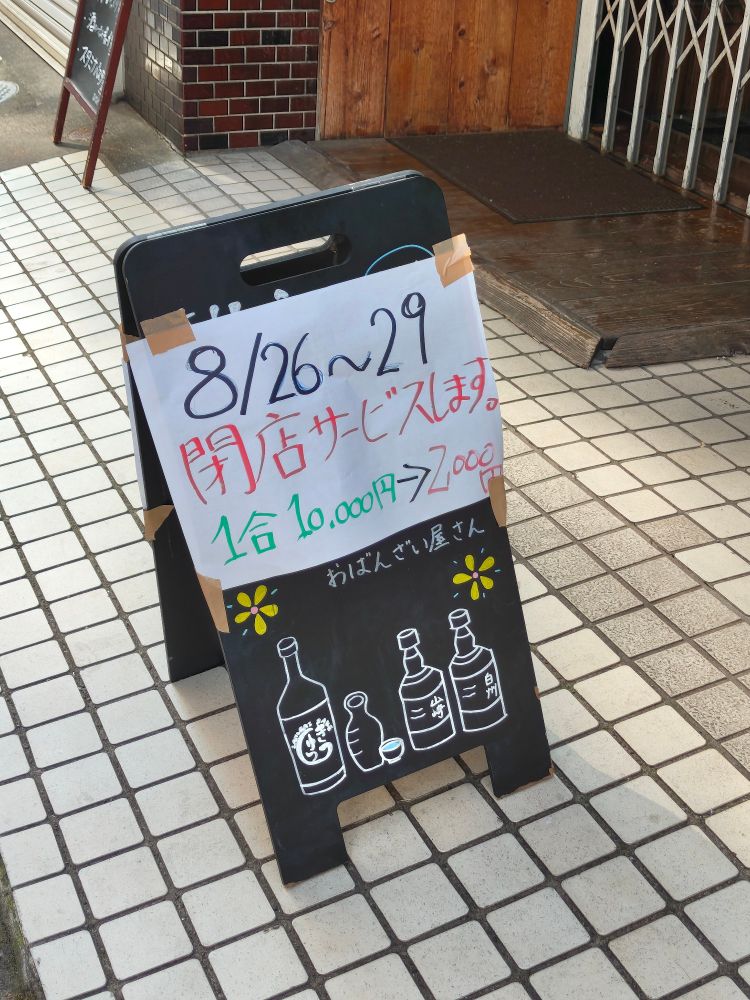 8/26～29
閉店サービスします。
1合 10,000円→2,000円
おばんざい屋さん
山崎
白州